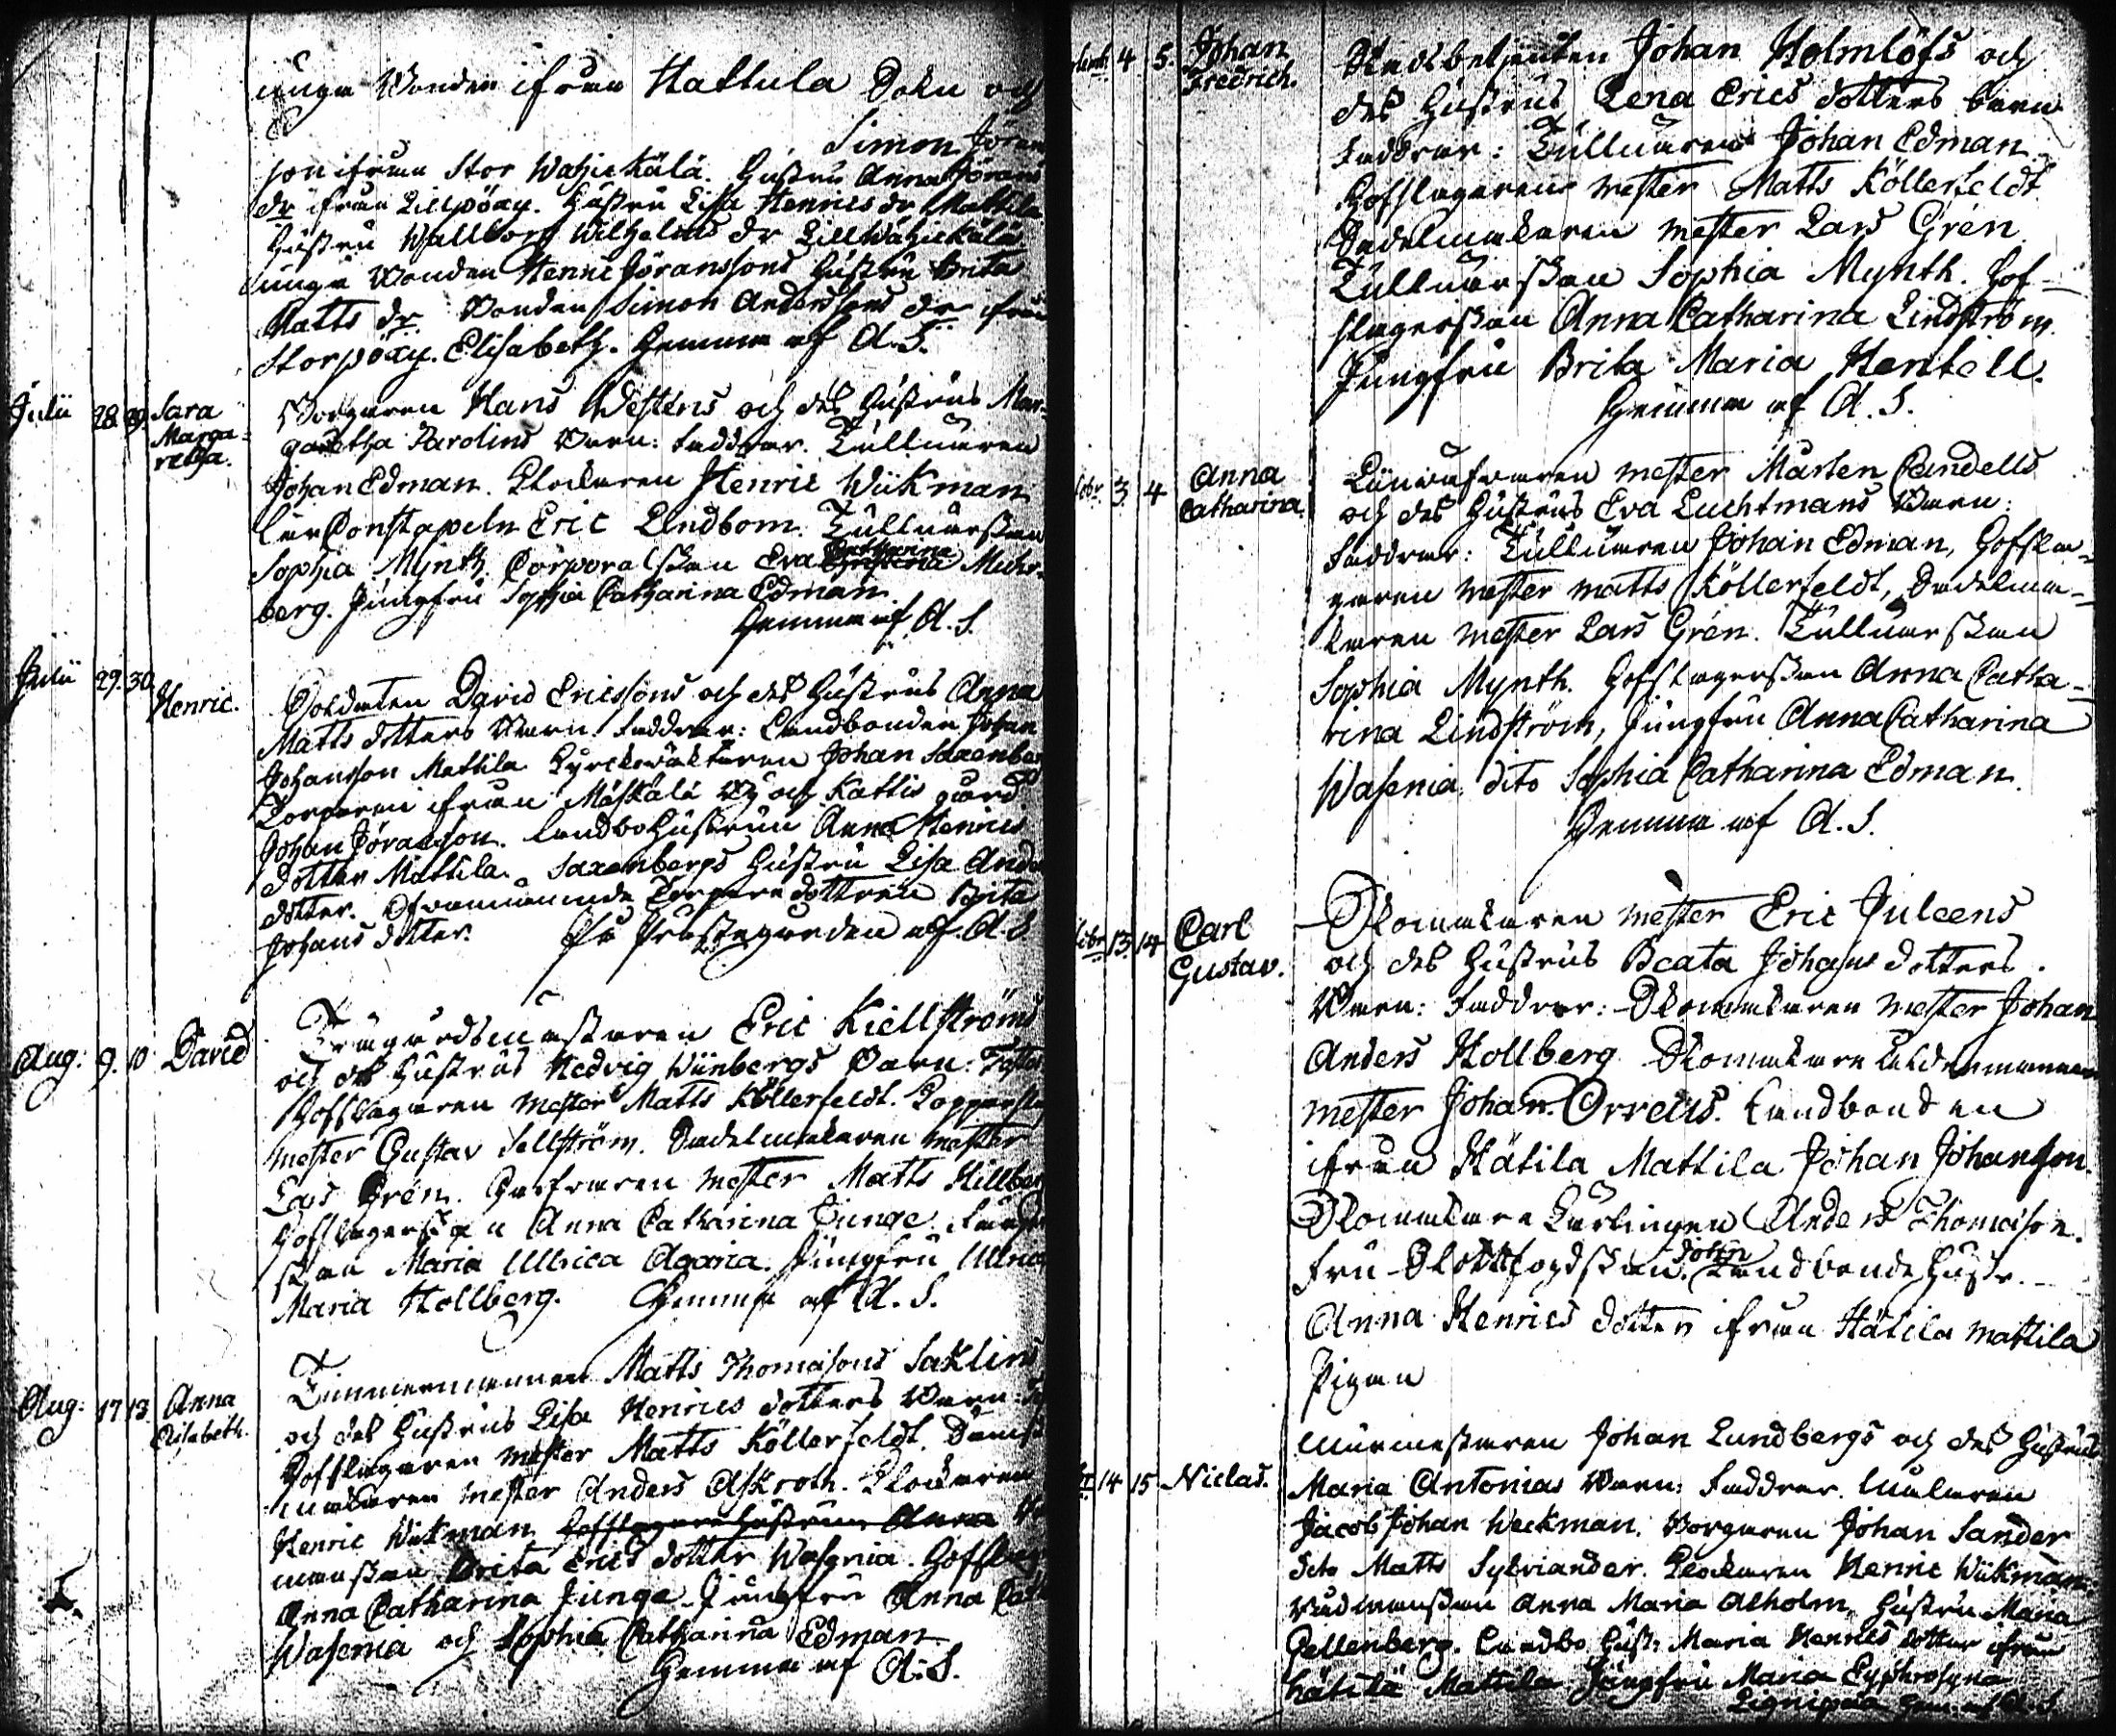 unga Bonden ifrån Hattula Doku och
Simon Jörans
son ifrån Stor Wahjiekälä. Hustru Anna Jörans
dr ifrån Lillpöxy. Hustru Lisa Henrics dr Mattila
Hustru Wallborg Wilhelms dr Lillwähiekälä
unga Bonden Henric Jöranssons Hustru Brita
Matts dr. Bonden Simon Anderssons dr ifrån
Storpöxy. Elisabeth. Hemma af A.S.
Julii 28 29. Sara Margaretha. Borgaren Hans Westens och des Hustrus Mar-
garetha Carolins Barn: Faddrar. Tullnären
Johan Edman. Klockaren Henric Wiikman
Constapeln Eric Lindbom. Tullnärskan
Sophia Mynth Corporalskan Eva Catharina Muhr-
berg. Jungfru Sophia Catharina Edman.
Hemma af A.S.
Julii 29. 30 Henric. Soldaten David Ericssons och des Hustrus Anna
Matts dotters Barn. Faddrar: Landbonden Johan
Johansson Mattila Kyrckwäktaren Johan Saxenberg
Torparen ifrån Mäskälä By och Kattis gård
Johan Jöransson. Landbohustrun Anna Henrics
dotter Mattila. Saxenbergs Hustru Lisa Anders
dotter. Ofvannämnde Torpare dottren Brita
Johans dotter. På Prästegården af A.S.
Aug: 9. 10 David Trägårdsmästaren Eric Kiellströms
och des Hustrus Hedvig Wiinbergs Barn:
Hofslagaren Mester Matts Köllerfeldt. Kopparsl
Mester Gustav Sellström. Sadelmakaren Mester
Lars Grén. Garfvaren Mester Matts Hillberg
Hofslagerskan Anna Catharina Junge.
skan Maria Ulbrica Agaria. Jungfru Ulrica
Maria Hollberg. Hemma af A.S.
Aug: 17 18. Anna Elisabeth. Timmermannen Matts Thomassons Saklins
och des Hustrus Lisa Henrics dotters Barn:
Hofslagaren Mester Matts Köllerfeldt.
makaren Mester Anders Askroth. Klockaren
Henric Wikman Hofslagare hustrun Anna
manskan Brita Erics dotter Wasenia. Hofslag
Anna Catharina Junge. Jungfru Anna Cath
Wasenia och Sophia Catharina Edman
Hemma af A.S.
4 5. Johan Fredrich. Stadsbetjenten Johan Holmlöfs och
des Hustrus Lena Erics dotters barn
Faddrar: Tullnären Johan Edman
Hofslagaren Mester Matts Köllerfeldt
Sadelmakaren Mester Lars Grén
Tullnärskan Sophia Mynth. Hof-
slagerskan Anna Catharina Lindström.
Jungfru Brita Maria Hentell.
Hemma af A.S.
3. 4 Anna Catharina. Mester Mårten Candells
och des Hustrus Eva Luchtmans Barn:
Faddrar: Tullnären Johan Edman, Hofsla-
garen Mester Matts Köllerfeldt, Sadelma-
karen Mester Lars Grén. Tullnärskan
Sophia Mynth. Hofslagerskan Anna Catha-
rina Lindström, Jungfru Anna Catharina
Wasenia, dito Sophia Catharina Edman.
Hemma af A.S.
13. 14 Carl Gustav. Skomakaren Mester Eric Juleens
och des Hustrus Beata Johans dotters
Barn: Faddrar: Skomakaren Mester Johan
Anders Hollberg Skomakare åldermannen
Mester Johan Orreus. Landbonden
ifrån Hätila Mattila Johan Johansson.
Skomakare Lärlingen Anders Thomasson.
Fru Slottsfogdskan. Landbonde Hustr.
Anna Henrics dotter ifrån Hätila Mattila
Pigan
14 15 Niclas. Murmestaren Johan Lundbergs och des Hustrus
Maria Antonias Barn: Faddrar. Målaren
Jacob Johan Weckman. Borgaren Johan Sander
dito Matts Sylviander. Klockaren Henric Wiikman.
Rådmanskan Anna Maria Alholm. Hustru Maria
Gellenberg. Landbo Hust: Maria Henrics dotter ifrån
Hätilä Mattila Jungfru Maria Eyphrosyna
Lignipaa Hem. af A.S.